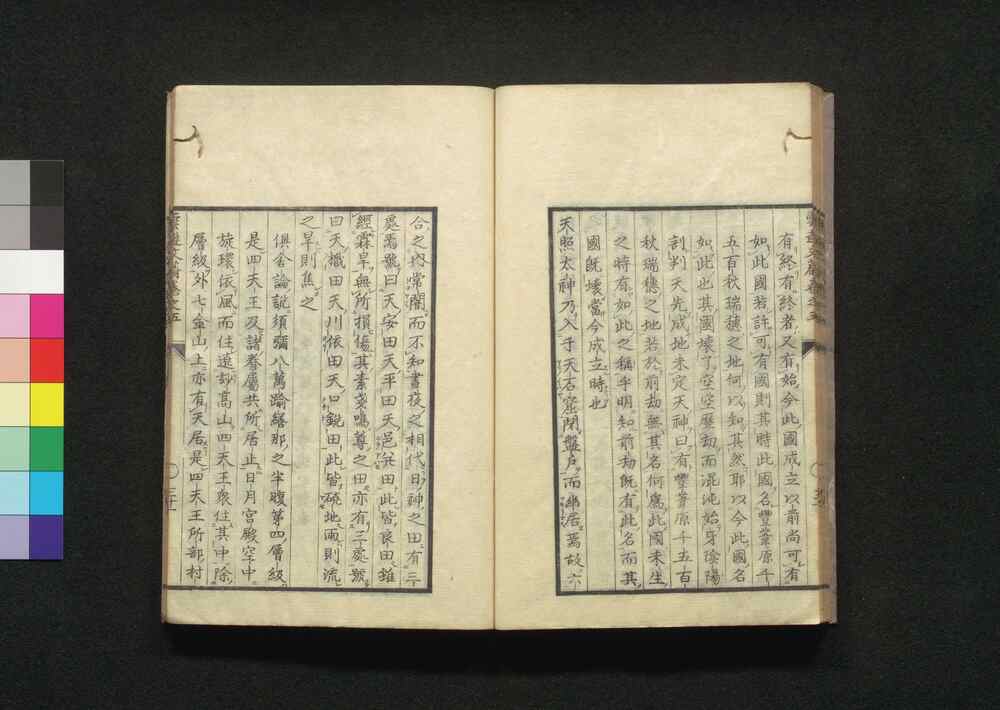 有終有終者又有始今此國成立以前尚可有
如此國若許可有國則其時此國名豐葦原千
五百秋瑞穗之地何以知其然耶以今此國名
如此也其國壞了空空歷劫而混沌始牙陰陽
剖判天先成地未定天神曰有豐葦原千五百
秋瑞穗之地若於前劫無其名何爲此國未生
之時有如此之稱乎明知前劫既有此名而其
國既壞當今成立時也
天照太神乃入于天石窟閉盤戶而幽居焉故六
合之内常闇而不知晝夜之相代日神之田有三
處焉號曰天安田天平田天邑并田此皆良田雖
經霖旱無所損傷其素戔嗚尊之田亦有三處號
曰天樴田天川依田天口鋭田此皆磽地雨則流
之旱則焦之
俱舍論説須彌八萬踰繕那之半腹第四層級
是四天王及諸眷屬共所居止日月宮殿空中
旋環依風而住遠訬高山四天王衆住其中除
層級外七金山上亦有天居是四天王所部村